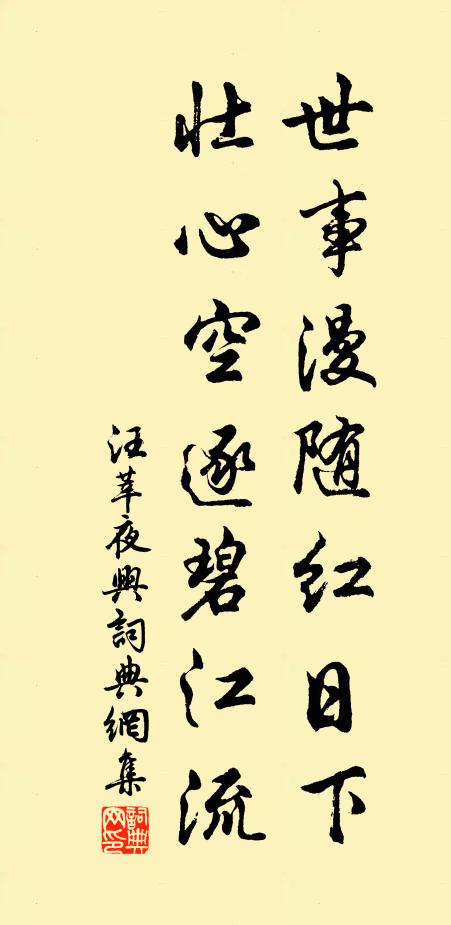 世事漫随红日下
壮心空逐碧江流
汪莘夜興詞典網集
詞典网印